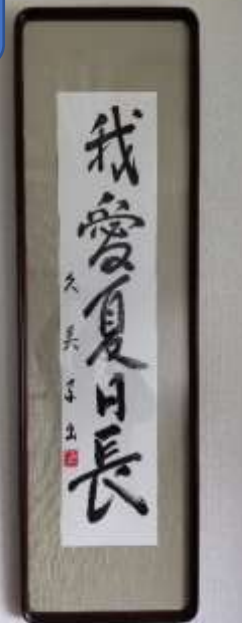 我愛夏日長
久美子書